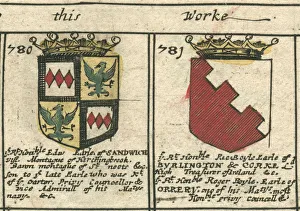 this Worke
780 781
Earle of SANDWICH
Visc. Montague of Hinchingbrook.
Baron montague of St. neots &c.
son to ye late Earle who was Kt.
of ye Garter, Privy Councellor &
Vice Admirall of his Maties
navy. &c.
ye Rt. Honble. Ric. Boyle Earle of
BVRLINGTON & CORKE Ld.
High Treasurer of Ireland &c.
ye Rt. Honble. Roger Boyle Earle of
ORRERY, one of his Maties. most
Honble. privy councell &c